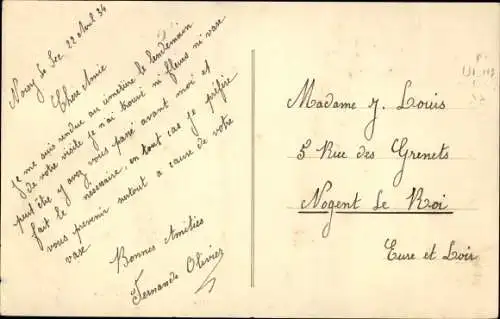 Noisy Le Sec 22 Avril 34
Chère Amie
Je me suis rendue au cimetière le lendemain
de votre visite je n'ai trouvé ni fleurs ni vase
peut être y avez vous passé avant moi et
fait le nécessaire, en tout cas je préfère
vous prévenir surtout a cause de votre
vase
Bonnes Amitiés
Fernande Olivier
Madame J. Louis
5 Rue des Grenets
Nogent Le Roi
Eure et Loir